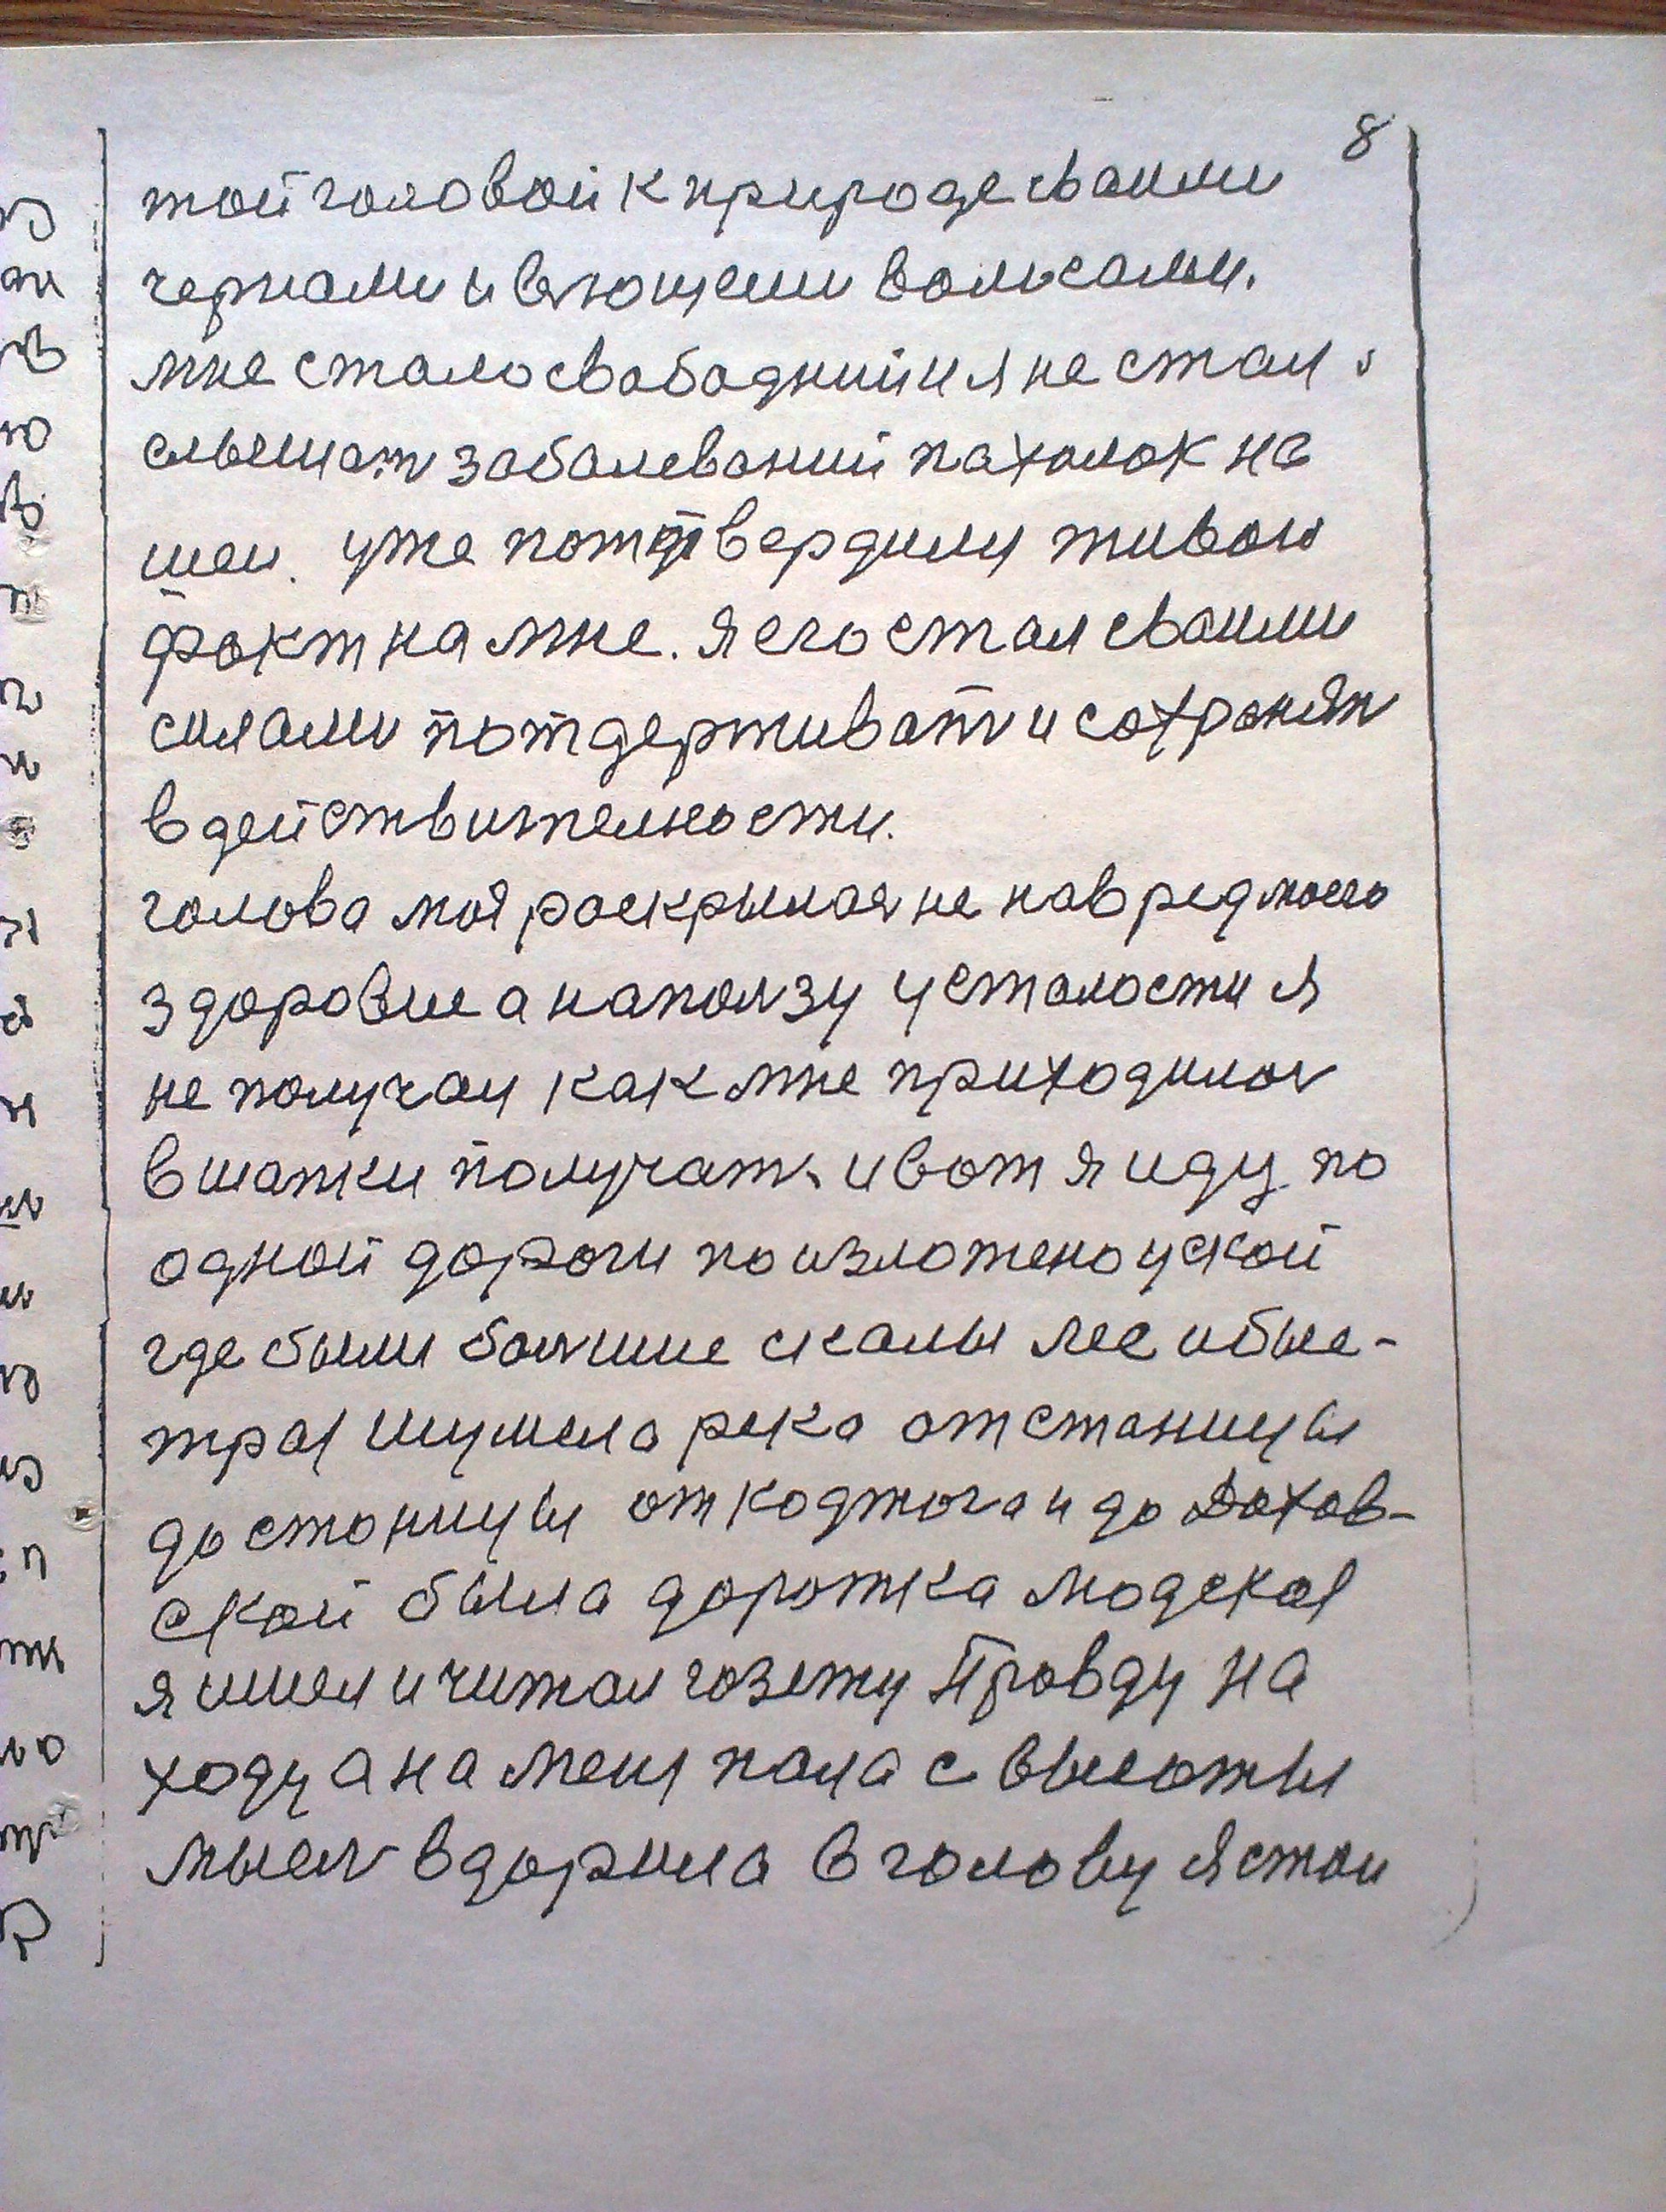 8
той головой к природе своими
чернами и вьющеми волосами.
мне стало свабадний и я не стал
слышать заболеваний пахолок на
шеи. уже потдтвердили живои
факт на мне. я его стал своими
силами потдерживать и сохранять
в действителности.
голова моя раскрылась не навред моего
здоровие а наползу усталости я
не получал как мне приходилось
в шапки получать и вот я иду по
одной дороги по изложено ускои
где были большие скалы лес и быс-
трая шумела река от станицы
до станицы от Коджога и до Дахов-
ской была дорожка людская
я шел и читал газету Правду на
ходу а на меня пала с высоты
мысль вдарила в голову я стал